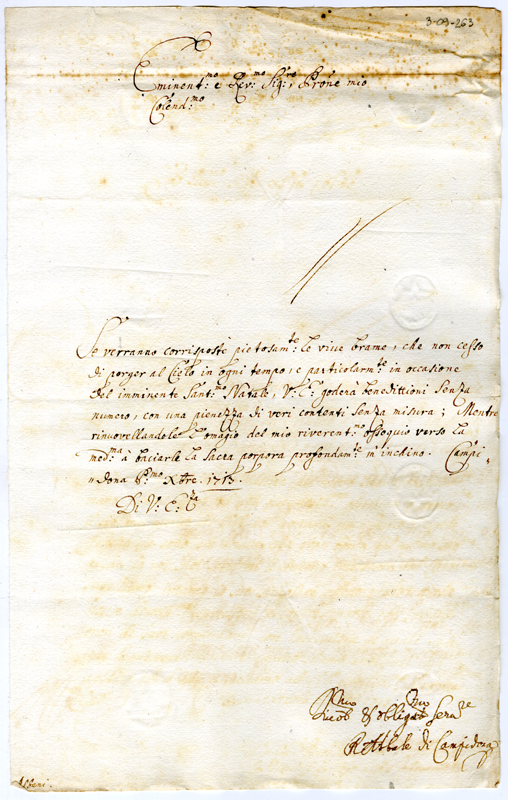 3-09-263
Eminent:mo e Rev:mo Sig:re, Prōne mio
Colend:mo
Se verranno corrisposte pietosam:te le vive brame, che non cesso
di porger al Cielo in ogni tempo, e particolarm:te in occasione
del imminente Sant:mo Natale, V: E: goderà benedittioni senza
numero, con una pienezza di veri contenti senza misura; Mentre
rinuovellandole l'omagio del mio riverent:mo ossequio verso la
med:ma à baciarle la sacra porpora profondam:te m'inchino. Campi=
=dona P:mo Xbre. 1713.
Di V: E:za
obligat Serv:re
Abbate di Campidona
Albani.